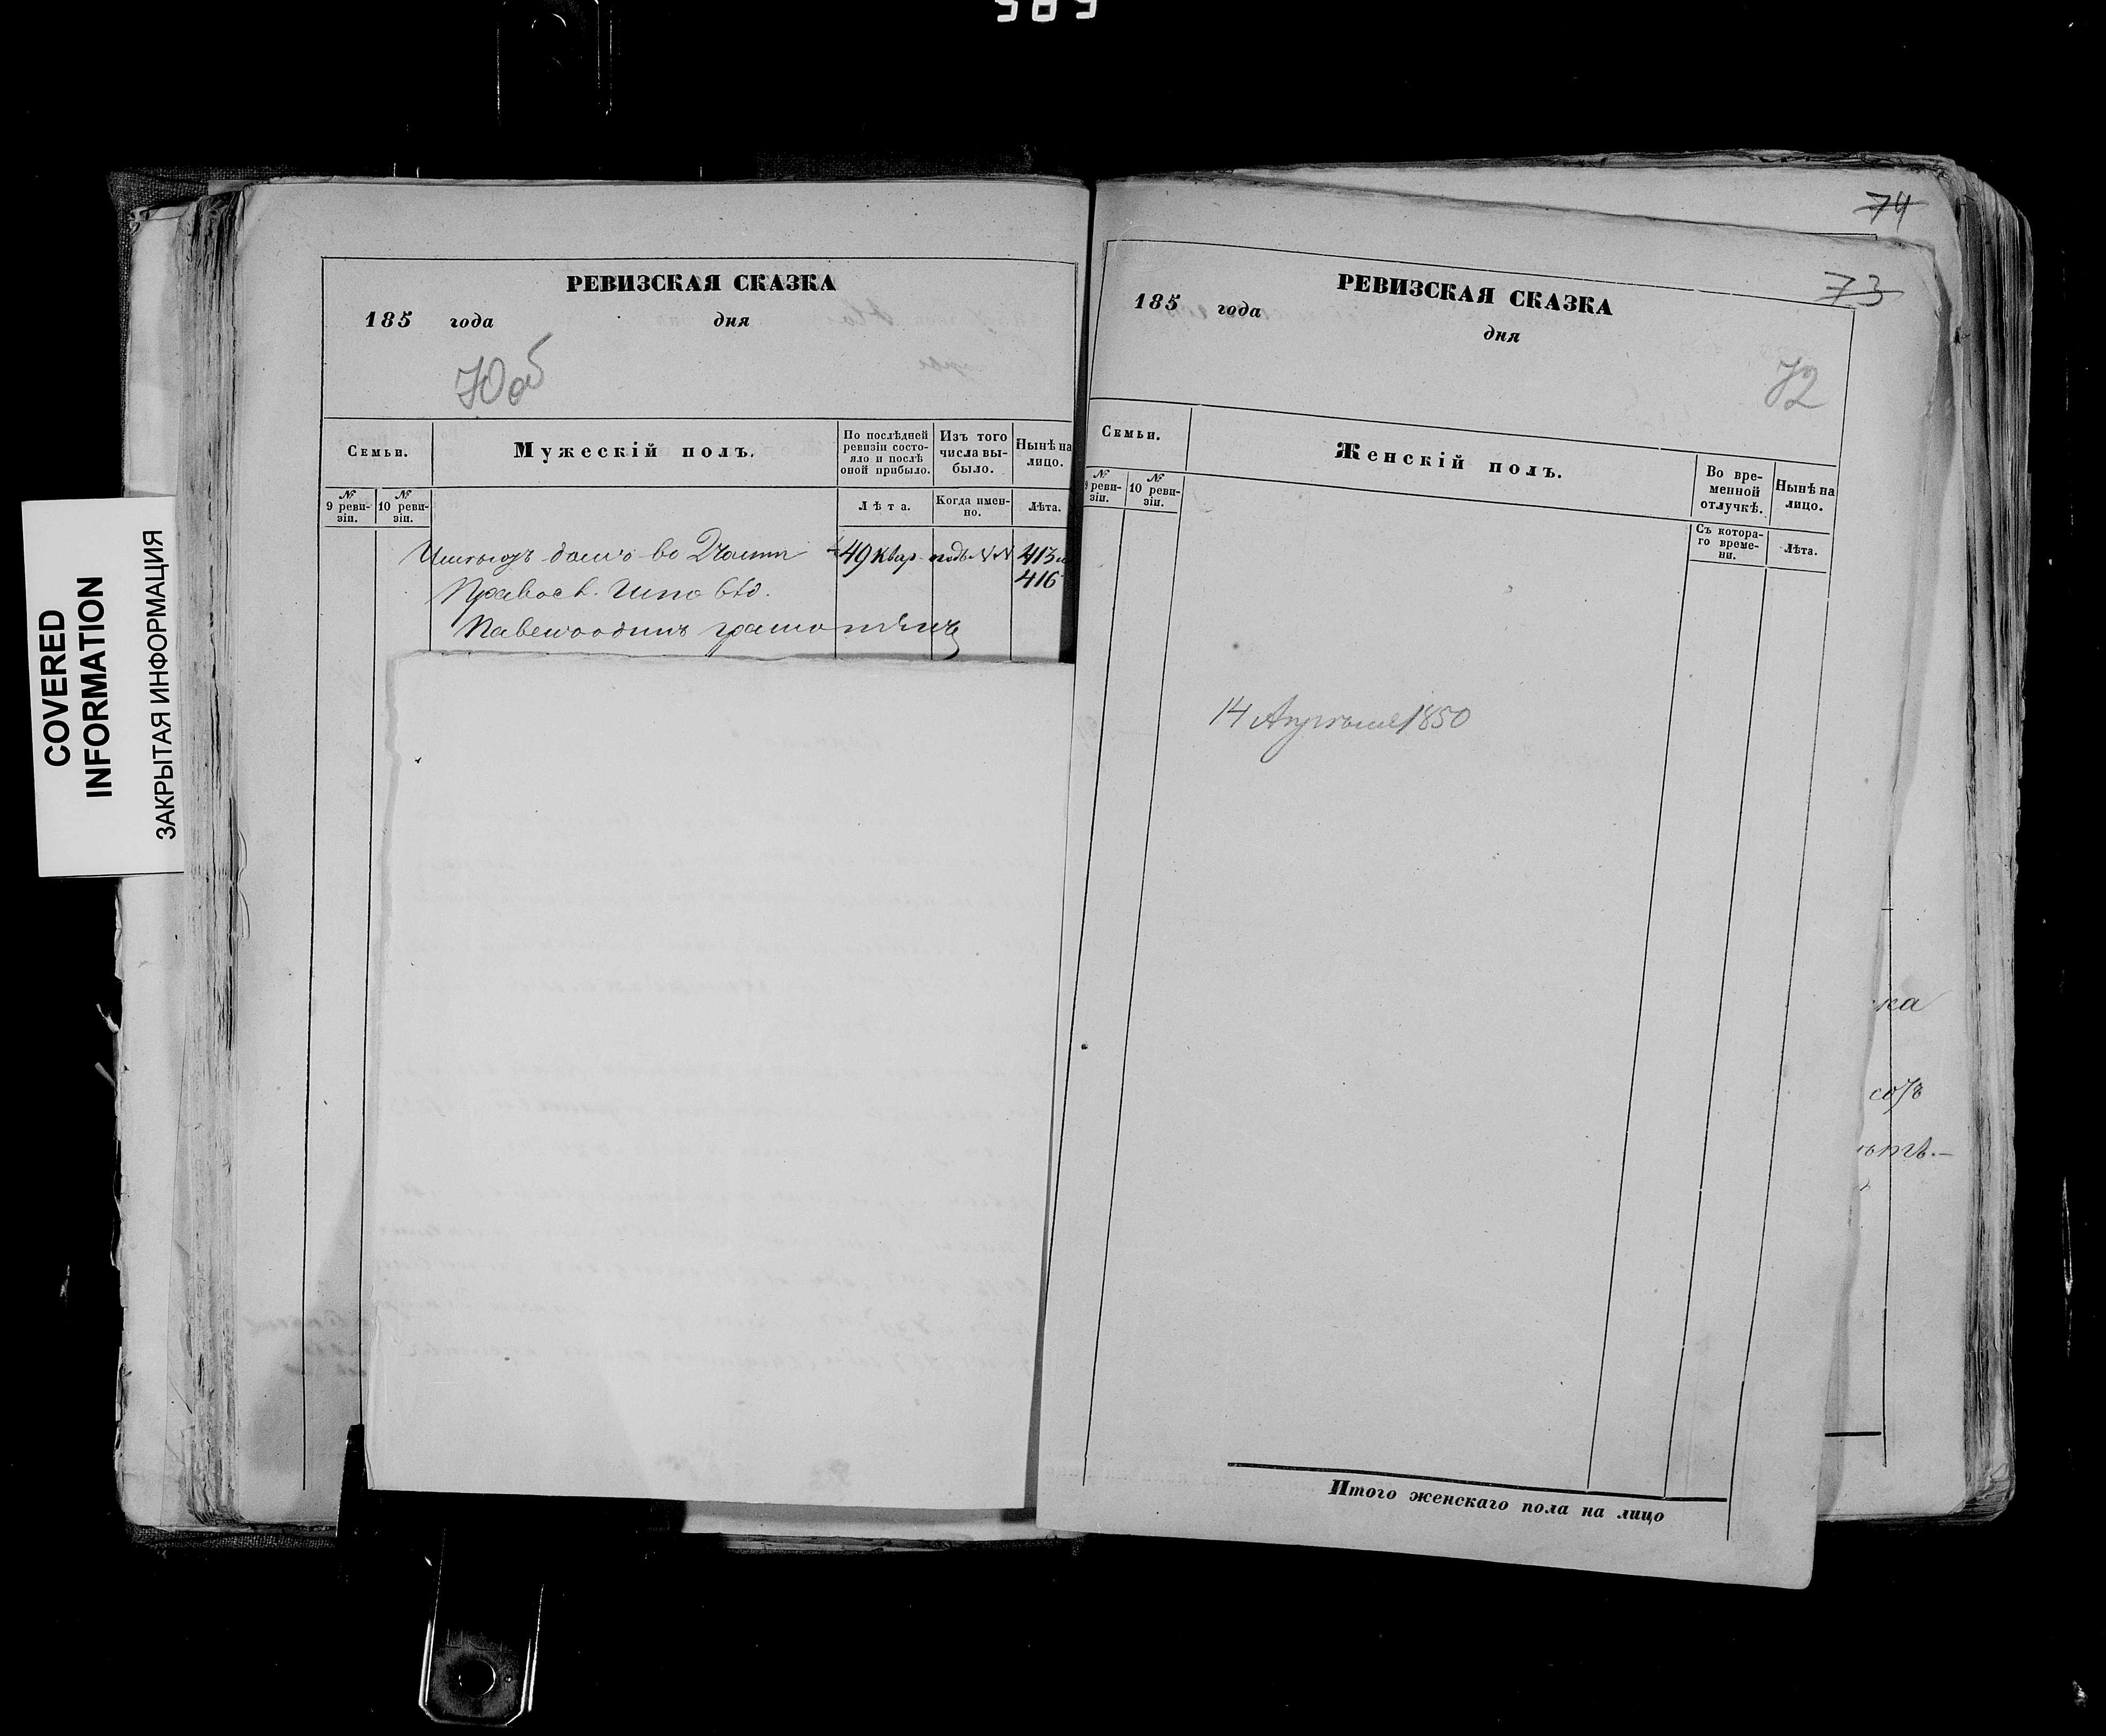 COVERED
INFORMATION
ЗАКРЫТАЯ ИНФОРМАЦИЯ
РЕВИЗСКАЯ СКАЗКА
185 года дня
70 об
Семьи.
Мужескій полъ.
По послѣдней
ревизіи состо-
яло и послѣ
оной прибыло.
Изъ того
числа вы-
было.
Нынѣ на
лицо.
№
9 реви-
зіи.
№
10 реви-
зіи.
Лѣта.
Когда имен-
но.
Лѣта.
домъ во 2 части 49 квар. подъ NN 413 и
416
Правосл. Исповѣд.
74
73
РЕВИЗСКАЯ СКАЗКА
185 года
дня
72
Семьи.
Женскій полъ.
Во вре-
менной
отлучкѣ.
Нынѣ на
лицо.
№
9 реви-
зіи.
№
10 реви-
зіи.
Съ котора-
го време-
ни.
Лѣта.
14 Апрѣля 1850
ка
Итого женскаго пола на лицо